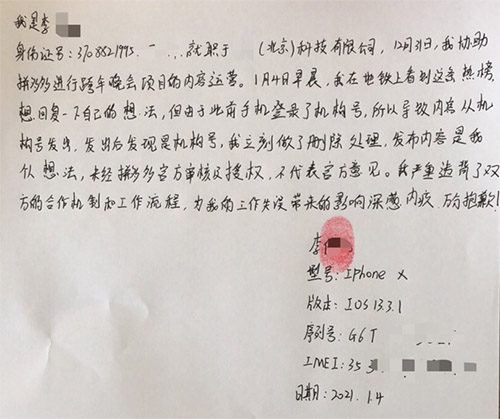 我是李
身份证号:3708821995 就职于 (北京)科技有限公司,12月31日,我协助
拼多多进行跨年晚会项目的内容运营。1月4日早晨,我在地铁上看到这条热榜,
想回复一下自己的想法,但由于此前手机登录了机构号,所以导致内容从机
构号发出,发出后发现是机构号,我立刻做了删除处理,发布内容是我
个人想法,未经拼多多官方审核及授权,不代表官方意见。我严重违背了双
方的合作机制和工作流程,为我的工作失误带来的影响深感内疚,万分抱歉!
李
型号:IPhone X
版本:IOS 13.3.1
序列号:G6T
IMEI:35 3
日期:2021.1.4